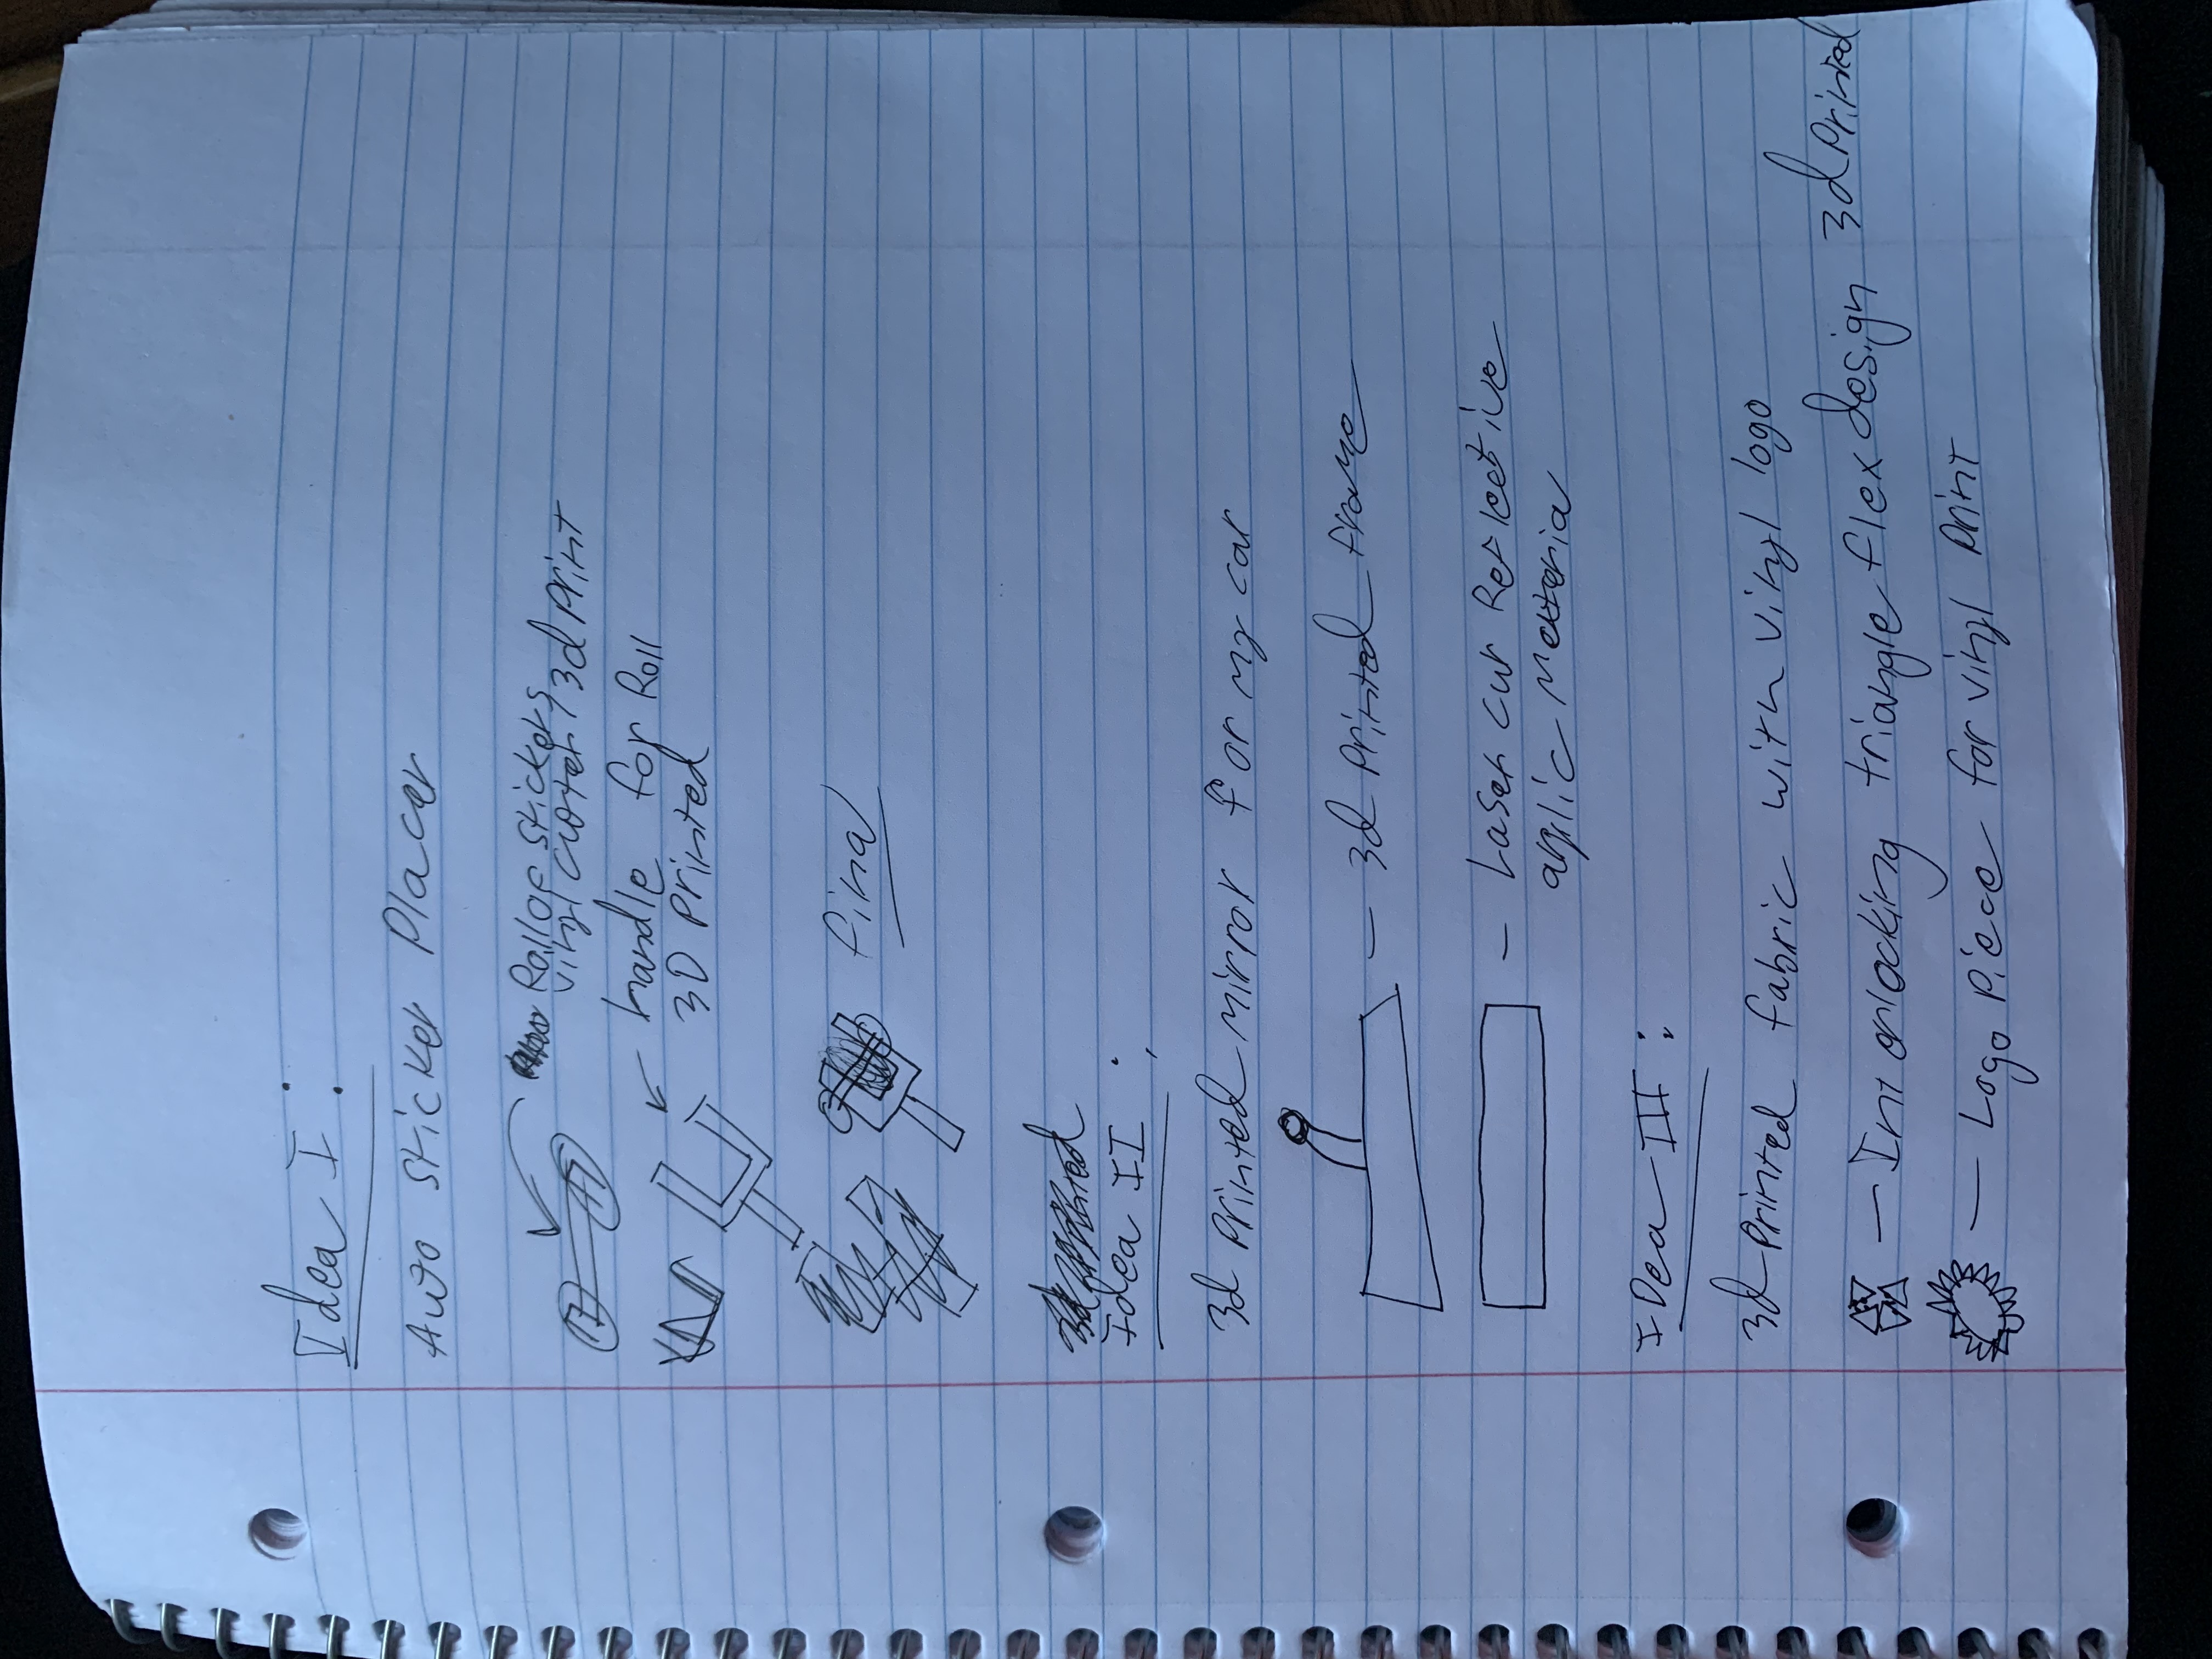 Idea I :
Auto Sticker Placer
Roll of stickers
vinyl cutter / 3d print
handle for Roll
3D printed
final
3d printed
Idea II :
3d printed mirror for my car
- 3d printed frame
- Laser cut Reflective
aqrlic Materia
IDea III :
3d printed fabric with vinyl logo
- Interlocking triangle flex design 3d printed
- Logo piece for vinyl print